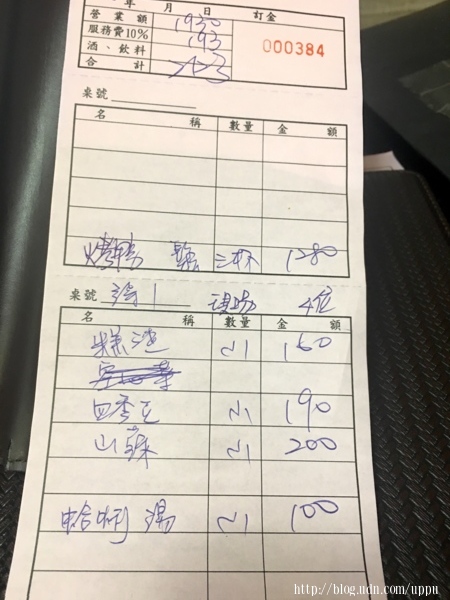 年 月 日 訂金
營業額 1930
服務費10% 193
000384
酒、飲料
合計 2123
桌號
名稱 數量 金額
烤鴨 三杯 1280
桌號 現場 4位
名稱 數量 金額
小 160
四季豆 小 190
山蘇 小 200
湯 小 100
http://blog.udn.com/uppu